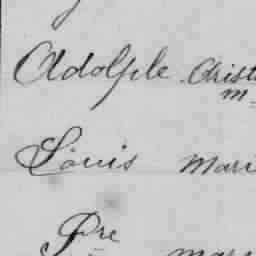 Adolphe Christ
m
Louis Mari
Pre mar